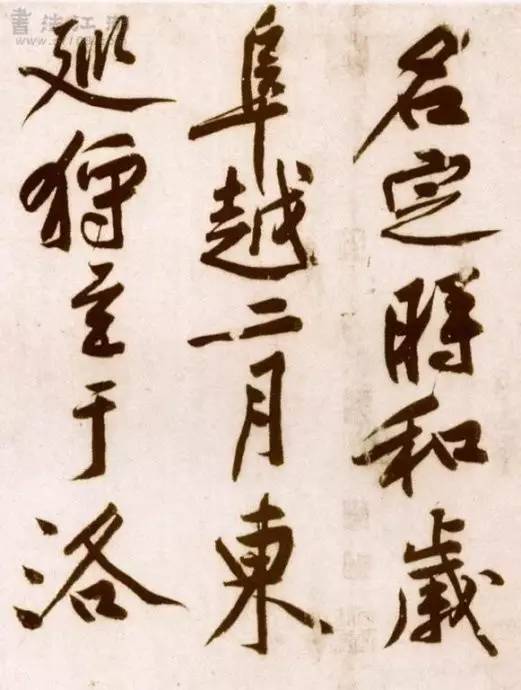 名定時和歲
阜越二月東
廵狩至于洛
書法江